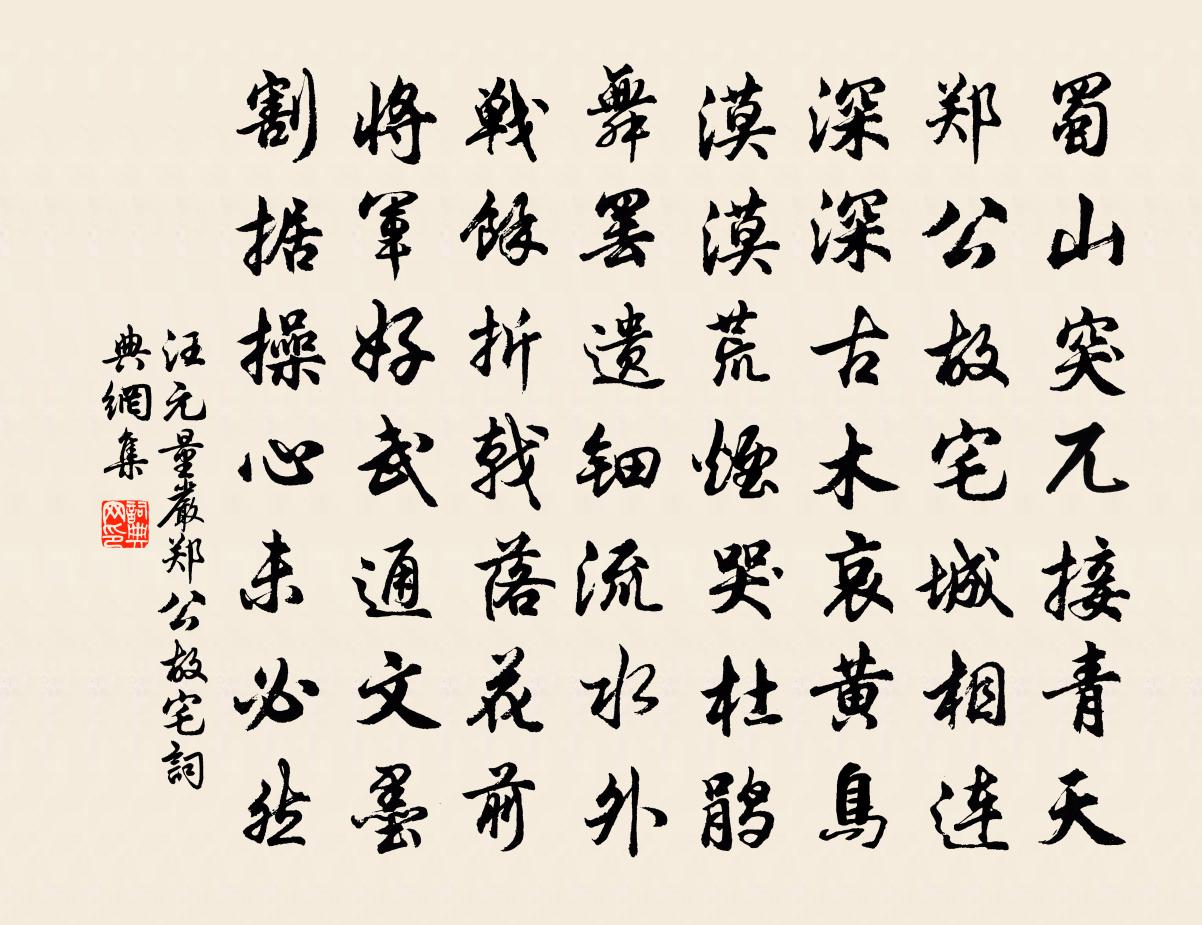 蜀山突兀接青天
郑公故宅城相连
深深古木哀黄鳥
漠漠荒煙哭杜鹃
舞罢遗钿流水外
戦餘折戟落花前
将軍好武通文墨
割据操心未必然
汪元量嚴郑公故宅詞
典網集
詞典网印